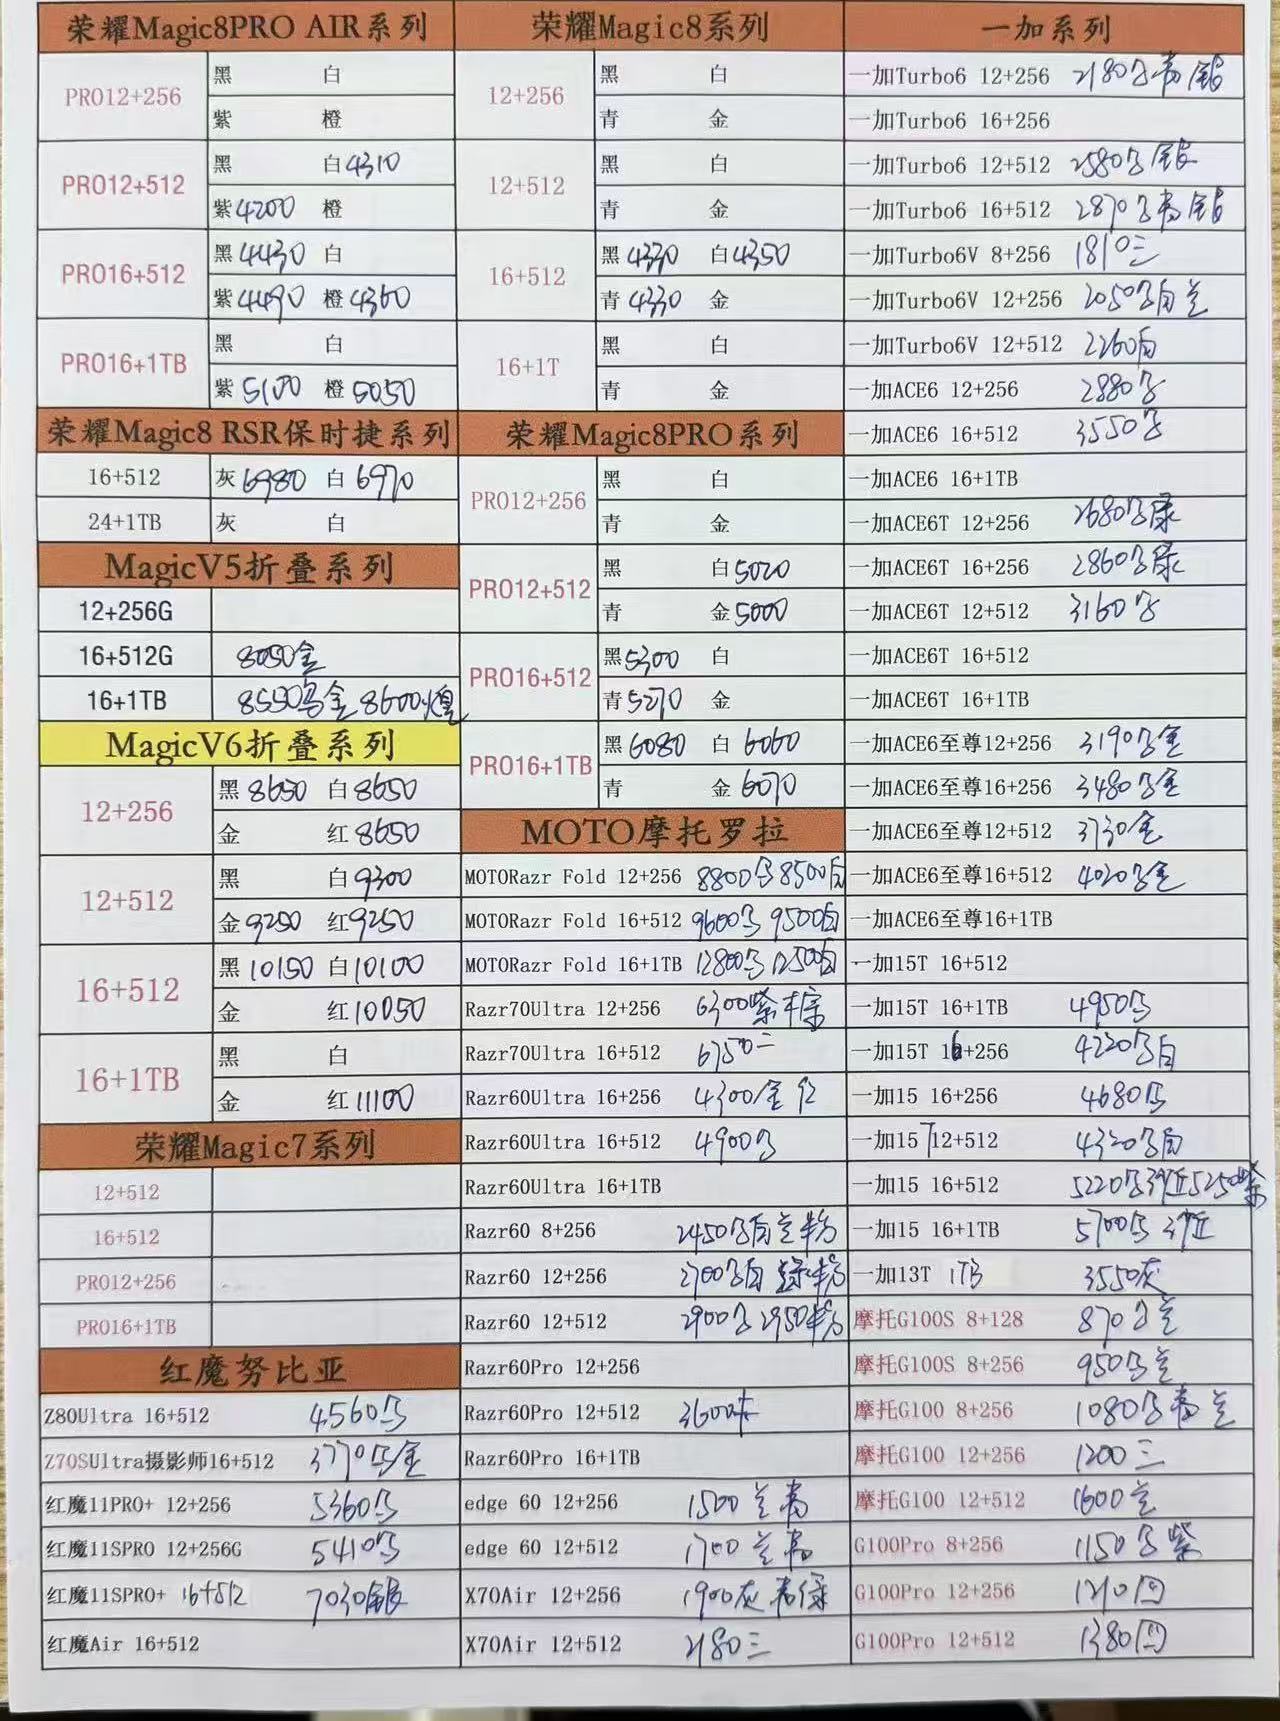 荣耀Magic8PRO AIR系列
PRO12+256
黑 白
紫 橙
PRO12+512
黑 白4310
紫4200 橙
PRO16+512
黑4430 白
紫4490 橙4360
PRO16+1TB
黑 白
紫5100 橙5050
荣耀Magic8 RSR保时捷系列
16+512 灰6980 白6970
24+1TB 灰 白
MagicV5折叠系列
12+256G
16+512G 8050金
16+1TB 8550乌金 8600煌
MagicV6折叠系列
12+256
黑8650 白8650
金 红8650
12+512
黑 白9300
金9250 红9250
16+512
黑10150 白10100
金 红10050
16+1TB
黑 白
金 红11100
荣耀Magic7系列
12+512
16+512
PRO12+256
PRO16+1TB
红魔努比亚
Z80Ultra 16+512 4560乌
Z70SUltra摄影师16+512 3770乌金
红魔11PRO+ 12+256 5360乌
红魔11SPRO 12+256G 5410乌
红魔11SPRO+ 16+512 7030银
红魔Air 16+512
荣耀Magic8系列
12+256
黑 白
青 金
12+512
黑 白
青 金
16+512
黑4330 白4350
青4330 金
16+1T
黑 白
青 金
荣耀Magic8PRO系列
PRO12+256
黑 白
青 金
PRO12+512
黑 白5020
青 金5000
PRO16+512
黑5300 白
青5270 金
PRO16+1TB
黑6080 白6060
青 金6070
MOTO摩托罗拉
MOTORazr Fold 12+256 8800乌8500白
MOTORazr Fold 16+512 9600乌 9500白
MOTORazr Fold 16+1TB 12800乌 12500白
Razr70Ultra 12+256 6300紫棕
Razr70Ultra 16+512 6750二
Razr60Ultra 16+256 4300金红
Razr60Ultra 16+512 4900乌
Razr60Ultra 16+1TB
Razr60 8+256 2450乌白兰粉
Razr60 12+256 2700乌白绿粉
Razr60 12+512 2900乌 2950粉
Razr60Pro 12+256
Razr60Pro 12+512 3600
Razr60Pro 16+1TB
edge 60 12+256 1500兰青
edge 60 12+512 1700兰青
X70Air 12+256 1900灰青绿
X70Air 12+512 2180三
一加系列
一加Turbo6 12+256 2180乌青银
一加Turbo6 16+256
一加Turbo6 12+512 2580乌银
一加Turbo6 16+512 2870乌青银
一加Turbo6V 8+256 1810三
一加Turbo6V 12+256 2050乌白兰
一加Turbo6V 12+512 2260白
一加ACE6 12+256 2880乌
一加ACE6 16+512 3550乌
一加ACE6 16+1TB
一加ACE6T 12+256 2680乌绿
一加ACE6T 16+256 2860乌绿
一加ACE6T 12+512 3160乌
一加ACE6T 16+512
一加ACE6T 16+1TB
一加ACE6至尊12+256 3190乌金
一加ACE6至尊16+256 3480乌金
一加ACE6至尊12+512 3730金
一加ACE6至尊16+512 4020乌金
一加ACE6至尊16+1TB
一加15T 16+512
一加15T 16+1TB 4950乌
一加15T 16+256 4220乌白
一加15 16+256 4680乌
一加15T12+512 4320乌白
一加15 16+512 5220乌沙丘5250紫
一加15 16+1TB 5700乌沙丘
一加13T 1TB 3550灰
摩托G100S 8+128 870乌兰
摩托G100S 8+256 950乌兰
摩托G100 8+256 1080乌青兰
摩托G100 12+256 1200三
摩托G100 12+512 1600兰
G100Pro 8+256 1150乌紫
G100Pro 12+256 1210四
G100Pro 12+512 1380四